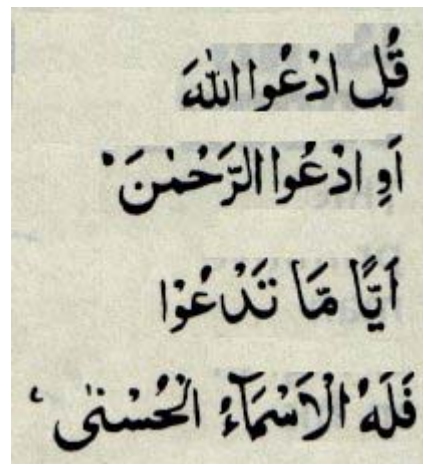 قُلِ ادْعُوا اللّٰهَ
اَوِ ادْعُوا الرَّحْمٰنَ ؕ
اَيًّا مَّا تَدْعُوْا
فَلَهُ الْاَسْمَآءُ الْحُسْنٰى ۚ